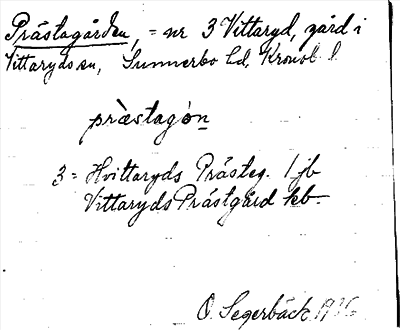 Prästagården, = nr 3 Vittaryd, gård i
Vittaryds sn, Sunnerbo hd, Kronob. l.
præstagón
3 = Hvittaryds Prästeg. 1 jb
Vittaryds Prästgård kb.
O. Segerbäck 1936